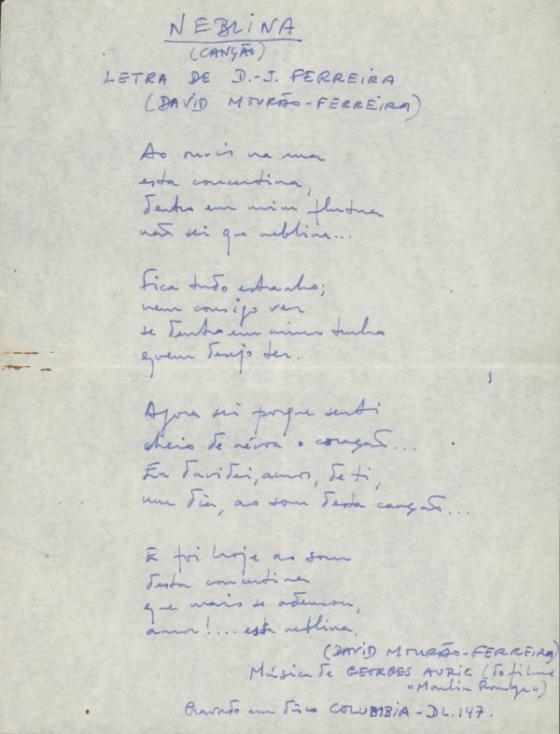 NEBLINA
(CANÇÃO)
LETRA DE D.-J. FERREIRA
(DAVID MOURÃO-FERREIRA)
Ao ouvir na rua
esta concertina,
dentro em mim flutua
não sei que neblina...
Fica tudo estranho;
nem consigo ver
se dentro em mim tenho
quem desejo ter.
Agora sei porque senti
cheio de névoa o coração...
Eu duvidei, amor, de ti,
um dia, ao som desta canção...
E foi hoje ao som
desta concertina
que mais se adensou,
amor!... essa neblina.
(DAVID MOURÃO-FERREIRA)
Música de GEORGES AURIC (do filme
"Moulin Rouge")
Gravado em disco COLUMBIA - DL.147.